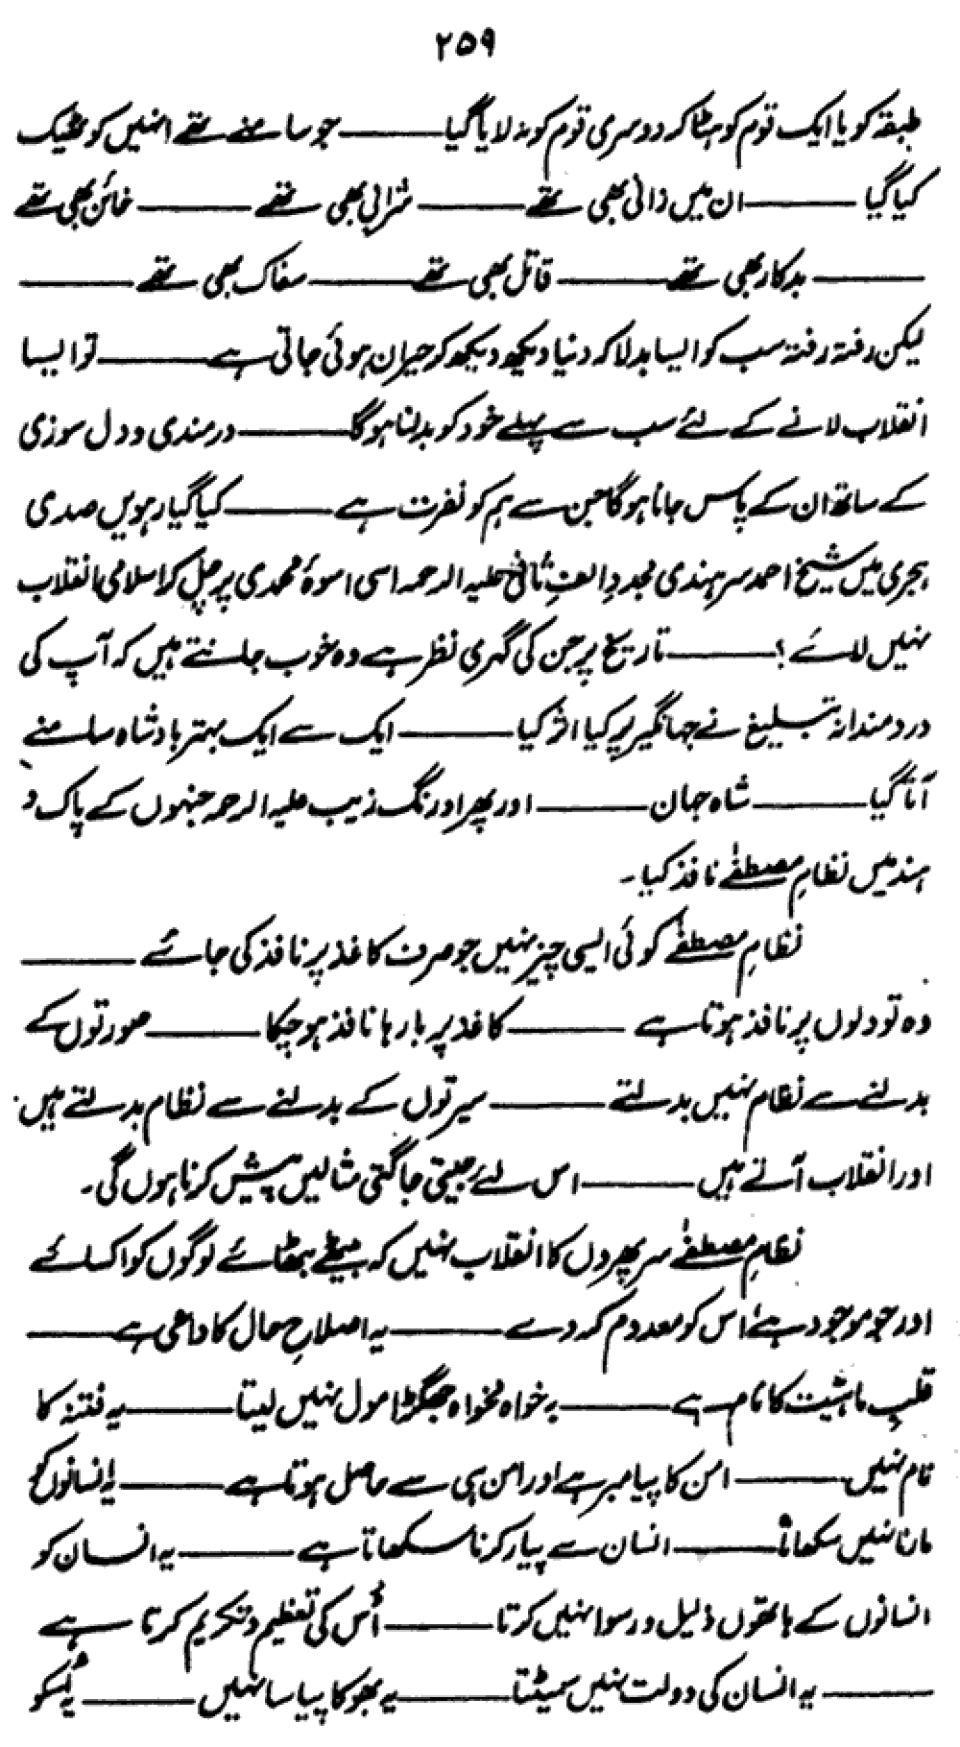 ۲۵۹
طبقہ کو یا ایک قوم کو ہٹا کر دوسری قوم کو نہ لایا گیا ——— جو سامنے تھے انہیں کو ٹھیک
کیا گیا ——— ان میں زانی بھی تھے ——— شرابی بھی تھے ——— خائن بھی تھے
——— بدکار بھی تھے ——— قاتل بھی تھے ——— سفاک بھی تھے ———
لیکن رفتہ رفتہ سب کو ایسا بدلا کہ دنیا دیکھ دیکھ کر حیران ہوئی جاتی ہے ——— تو ایسا
انقلاب لانے کے لئے سب سے پہلے خود کو بدلنا ہوگا ——— درمندی و دل سوزی
کے ساتھ ان کے پاس جانا ہوگا جن سے ہم کو نفرت ہے ——— کیا گیارہویں صدی
ہجری میں شیخ احمد سرہندی مجدد الفِ ثانی علیہ الرحمہ اسی اسوۂ محمدی پر چل کر اسلامی انقلاب
نہیں لائے ؟ ——— تاریخ پر جن کی گہری نظر ہے وہ خوب جانتے ہیں کہ آپ کی
دردمندانہ تبلیغ نے جہانگیر پر کیا اثر کیا ——— ایک سے ایک بہتر بادشاہ سامنے
آتا گیا ——— شاہ جہان ——— اور پھر اورنگ زیب علیہ الرحمہ جنہوں کے پاک و
ہند میں نظامِ مصطفےٰ نافذ کیا۔
نظامِ مصطفےٰ کوئی ایسی چیز نہیں جو صرف کاغذ پر نافذ کی جائے ———
وہ تو دلوں پر نافذ ہوتا ہے ——— کاغذ پر بارہا نافذ ہو چکا ——— صورتوں کے
بدلنے سے نظام نہیں بدلتے ——— سیرتوں کے بدلنے سے نظام بدلتے ہیں
اور انقلاب آتے ہیں ——— اس لئے جیتی جاگتی مثالیں پیش کرنا ہوں گی۔
نظامِ مصطفےٰ سر پھروں کا انقلاب نہیں کہ بیٹھے بٹھائے لوگوں کو اکسائے
اور جو موجود ہے اس کو معدوم کر دے ——— یہ اصلاحِ حال کا داعی ہے ———
قلبِ ماہیت کا نام ہے ——— یہ خواہ مخواہ جھگڑا مول نہیں لیتا ——— یہ فتنہ کا
نام نہیں ——— امن کا پیامبر ہے اور امن ہی سے حاصل ہوتا ہے ——— یہ انسانوں کو
مارنا نہیں سکھاتا ——— انسان سے پیار کرنا سکھاتا ہے ——— یہ انسان کو
انسانوں کے ہاتھوں ذلیل و رسوا نہیں کرتا ——— اُس کی تعظیم و تکریم کرتا ہے
——— یہ انسان کی دولت نہیں سمیٹتا ——— یہ بھوکا پیاسا نہیں ——— یہ اُسکو